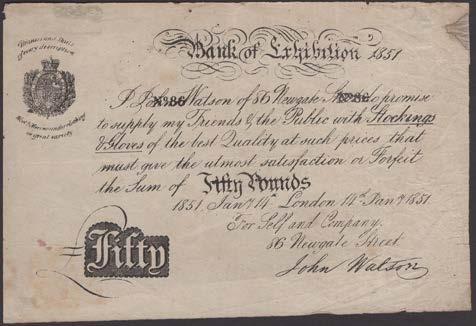 Bank of Exhibition 1851
of every description
I John Watson of 86 Newgate St do promise
No 86 No 86
to supply my Friends & the Public with Stockings
& Gloves of the best Quality at such prices that
must give the utmost satisfaction or Forfeit
the Sum of Fifty Pounds
1851. Jany 14th London 14th Jany 1851.
For Self and Company.
86 Newgate Street
John Watson
Fifty
in great variety